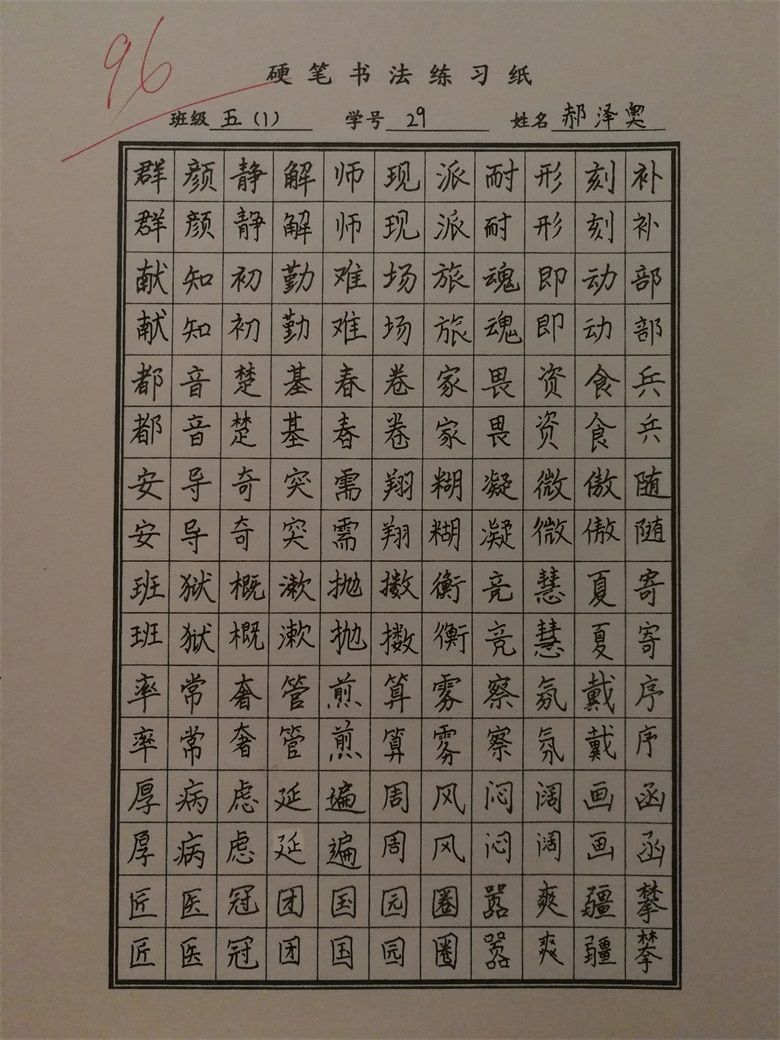 96
硬笔书法练习纸
班级 五(1) 学号 29 姓名 郝泽奥
群颜静解师现派耐形刻补
群颜静解师现派耐形刻补
献知初勤难场旅魂即动部
献知初勤难场旅魂即动部
都音楚基春卷家畏资食兵
都音楚基春卷家畏资食兵
安导奇突需翔糊凝微傲随
安导奇突需翔糊凝微傲随
班狱概漱抛擞衡竞慧夏寄
班狱概漱抛擞衡竞慧夏寄
率常奢管煎算雾察氛戴序
率常奢管煎算雾察氛戴序
厚病虑延遍周风闷阔画函
厚病虑延遍周风闷阔画函
匠医冠团国园圈嚣爽疆攀
匠医冠团国园圈嚣爽疆攀